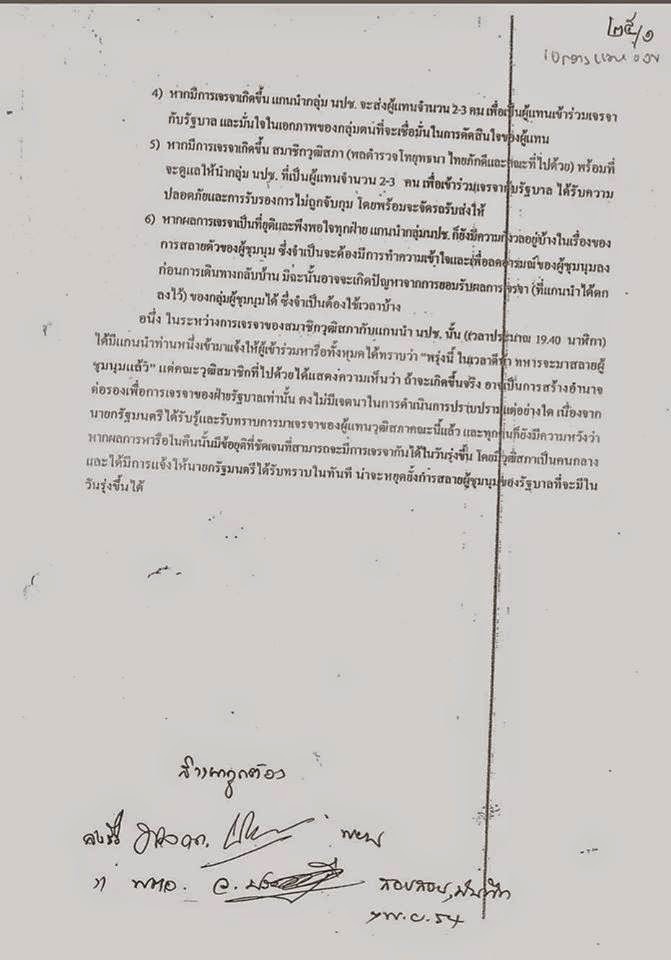 ๒๕/๑
4) หากมีการเจรจาเกิดขึ้น แกนนำกลุ่ม นปช. จะส่งผู้แทนจำนวน 2-3 คน เพื่อเป็นผู้แทนเข้าร่วมเจรจา
กับรัฐบาล และมั่นใจในเอกภาพของกลุ่มตนที่จะเชื่อมั่นในการตัดสินใจของผู้แทน
5) หากมีการเจรจาเกิดขึ้น สมาชิกวุฒิสภา (พลตำรวจโทยุทธนา ไทยภักดีและคณะที่ไปด้วย) พร้อมที่
จะดูแลให้นำกลุ่ม นปช. ที่เป็นผู้แทนจำนวน 2-3 คน เพื่อเข้าร่วมเจรจากับรัฐบาล ได้รับความ
ปลอดภัยและการรับรองการไม่ถูกจับกุม โดยพร้อมจะจัดรถรับส่งให้
6) หากผลการเจรจาเป็นที่ยุติและพึงพอใจทุกฝ่าย แกนนำกลุ่มนปช. ก็ยังมีความกังวลอยู่บ้างในเรื่องของ
การสลายตัวของผู้ชุมนุม ซึ่งจำเป็นจะต้องมีการทำความเข้าใจและเพื่อลดอารมณ์ของผู้ชุมนุมลง
ก่อนการเดินทางกลับบ้าน มิฉะนั้นอาจจะเกิดปัญหาจากการยอมรับผลการเจรจา (ที่แกนนำได้ตก
ลงไว้) ของกลุ่มผู้ชุมนุมได้ ซึ่งจำเป็นต้องใช้เวลาบ้าง
อนึ่ง ในระหว่างการเจรจาของสมาชิกวุฒิสภากับแกนนำ นปช. นั้น (เวลาประมาณ 19.40 นาฬิกา)
ได้มีแกนนำท่านหนึ่งเข้ามาแจ้งให้ผู้เข้าร่วมหารือทั้งหมดได้ทราบว่า “พรุ่งนี้ ในเวลาตีห้า ทหารจะมาสลายผู้
ชุมนุมแล้ว” แต่คณะวุฒิสมาชิกที่ไปด้วยได้แสดงความเห็นว่า ถ้าจะเกิดขึ้นจริง อาจเป็นการสร้างอำนาจ
ต่อรองเพื่อการเจรจาของฝ่ายรัฐบาลเท่านั้น คงไม่มีเจตนาในการดำเนินการปราบปรามแต่อย่างใด เนื่องจาก
นายกรัฐมนตรีได้รับรู้และรับทราบการมาเจรจาของผู้แทนวุฒิสภาคณะนี้แล้ว และทุกคนก็ยังมีความหวังว่า
หากผลการหารือในคืนนั้นมีข้อยุติที่ชัดเจนที่สามารถจะมีการเจรจากันได้ในวันรุ่งขึ้น โดยมีวุฒิสภาเป็นคนกลาง
และได้มีการแจ้งให้นายกรัฐมนตรีได้รับทราบในทันที น่าจะหยุดยั้งการสลายผู้ชุมนุมของรัฐบาลที่จะมีใน
วันรุ่งขึ้นได้
สำเนาถูกต้อง
ลงชื่อ พยาน
พ.ย. 54